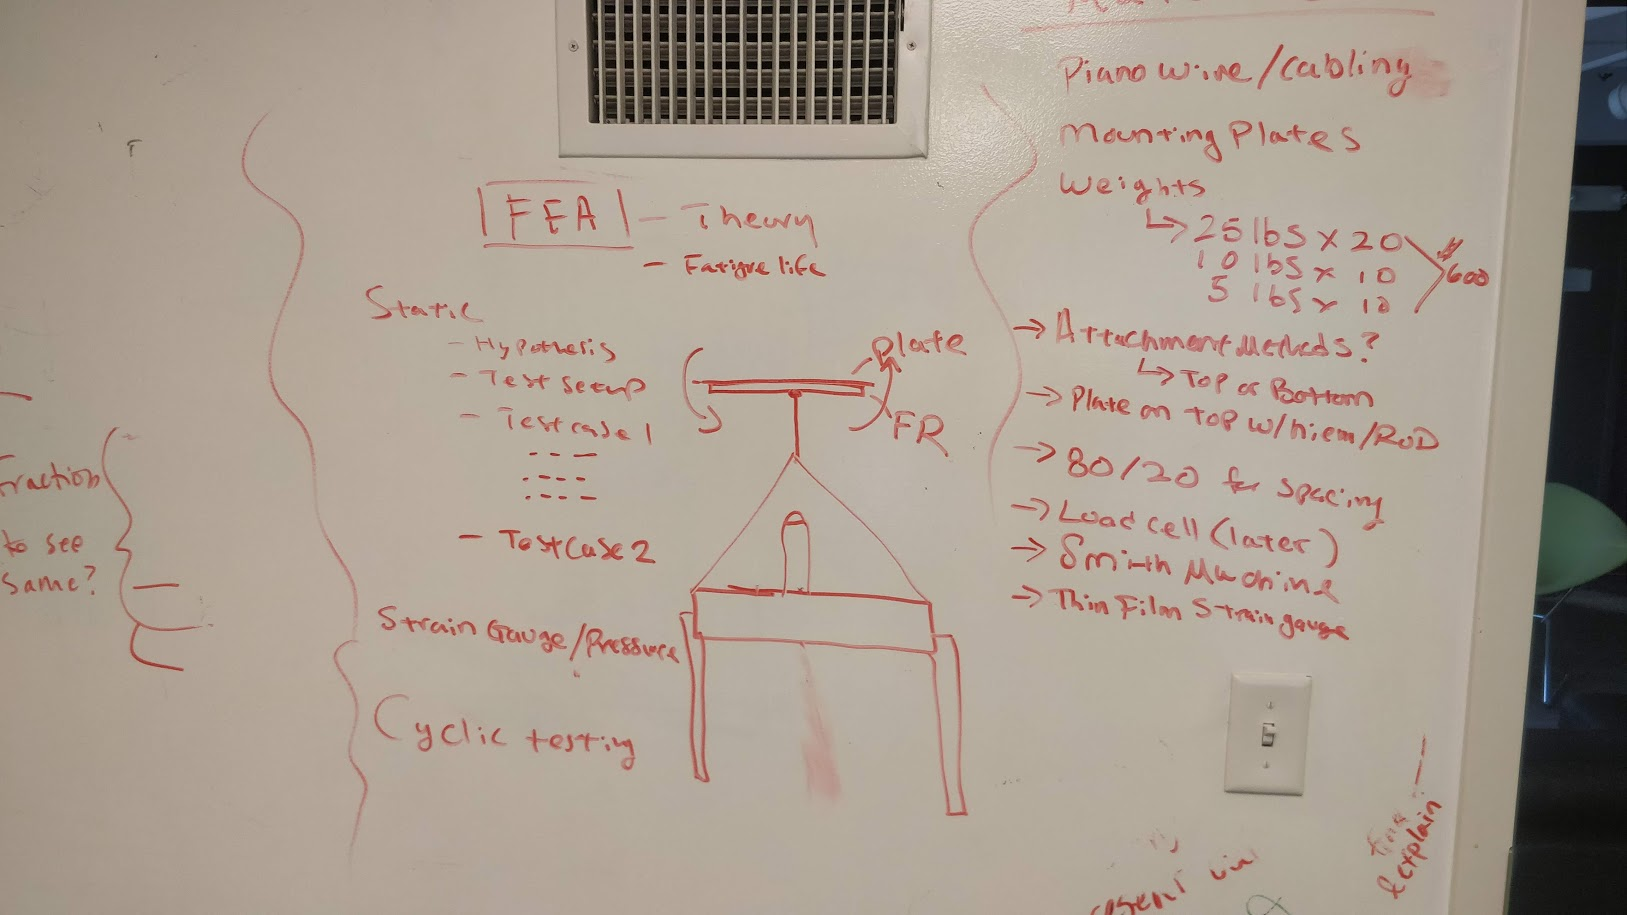 FEA - Theory
- Fatigue life
Static
- Hypothesis
- Test setup
- Test case 1
- Test Case 2
Strain Gauge/Pressure
Cyclic testing
Plate
FR
Piano wire/cabling
Mounting Plates
Weights
↳ 25 lbs x 20
10 lbs x 10
5 lbs x 10
$600
→ Attachment Methods?
↳ Top or Bottom
→ Plate on top w/ /ROD
→ 80/20 for spacing
→ Load cell (later)
→ Smith Machine
→ Thin Film Strain gauge
fraction
to see
same?
& explain